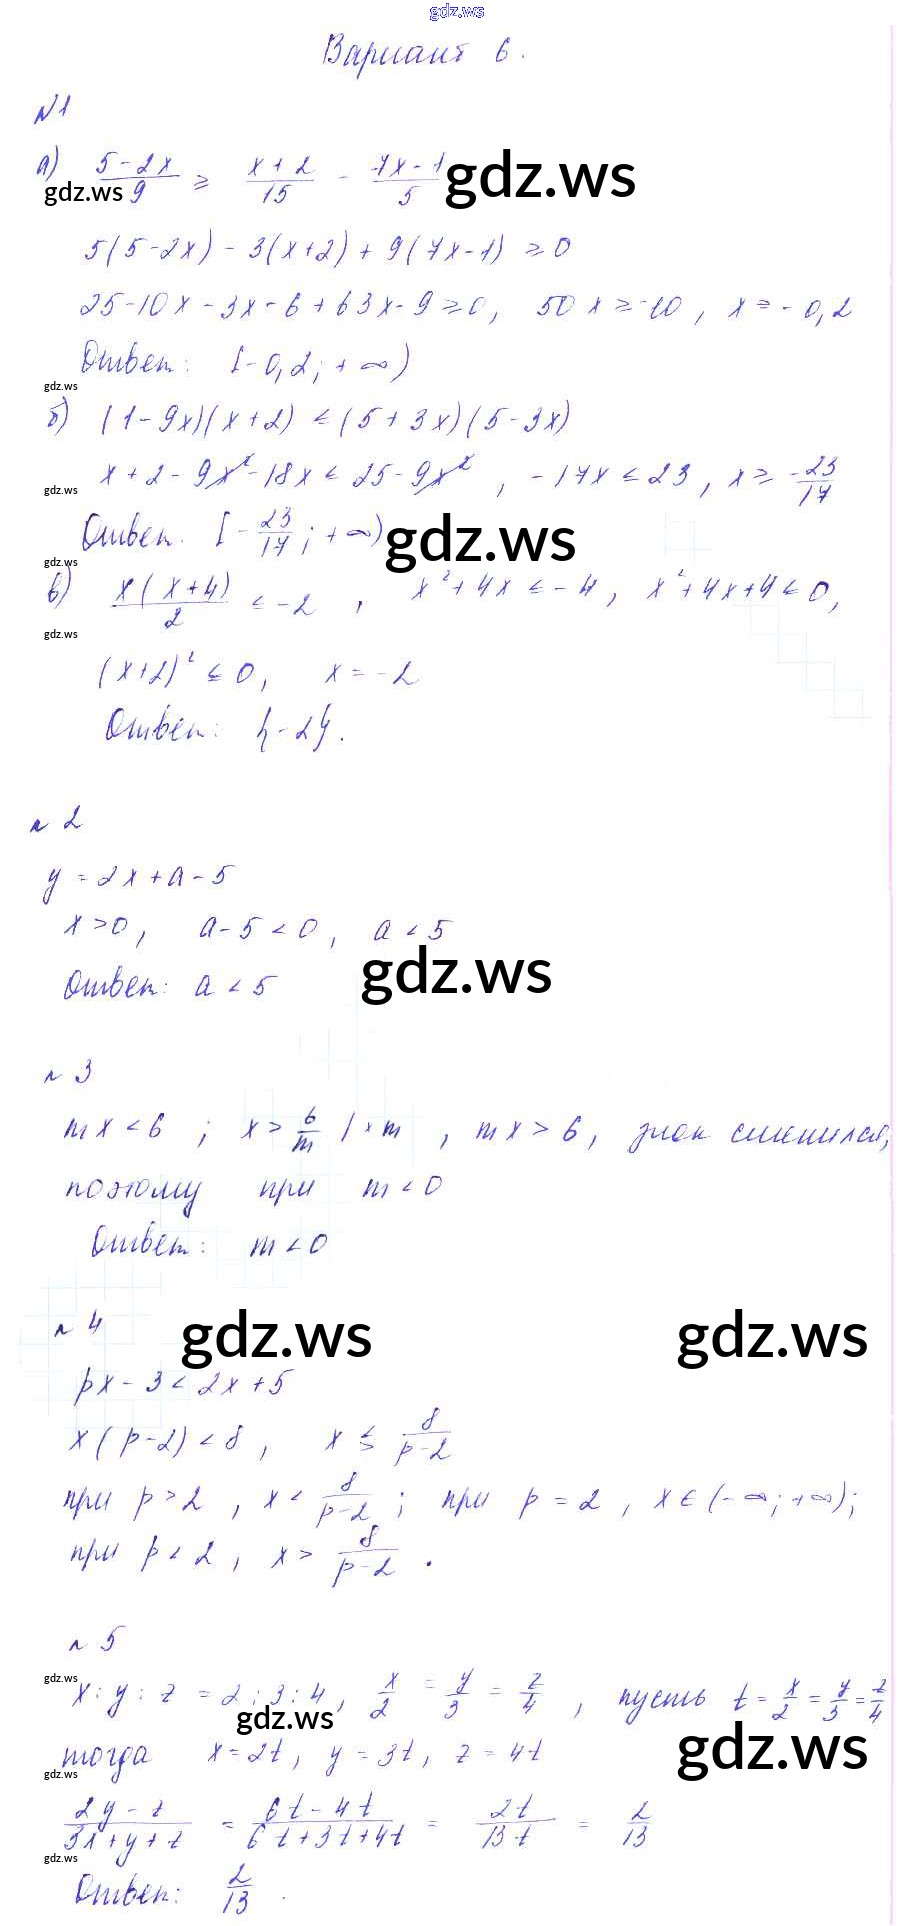 gdz.ws
Вариант 6.
№1
а) (5-2x)/9 ≥ (x+2)/15 - (7x-1)/5 gdz.ws
gdz.ws
5(5-2x) - 3(x+2) + 9(7x-1) ≥ 0
25-10x-3x-6+63x-9≥0, 50x≥-10, x≥-0,2
Ответ: [-0,2; +∞)
gdz.ws
б) (1-9x)(x+2) ≤ (5+3x)(5-3x)
x+2-9x²-18x ≤ 25-9x², -17x ≤ 23, x ≥ -23/17
gdz.ws
Ответ. [-23/17; +∞) gdz.ws
gdz.ws
в) x(x+4)/2 ≤ -2, x²+4x ≤ -4, x²+4x+4 ≤ 0,
gdz.ws
(x+2)² ≤ 0, x = -2
Ответ: {-2}.
№ 2
y = 2x + a - 5
x > 0, a-5 < 0, a < 5
Ответ: a < 5 gdz.ws
№ 3
mx < 6 ; x > 6/m | · m, mx > 6, знак сменился,
поэтому при m < 0
Ответ: m < 0
№ 4 gdz.ws gdz.ws
px - 3 < 2x + 5
x(p-2) < 8, x ≶ 8/(p-2)
при p > 2, x < 8/(p-2); при p = 2, x ∈ (-∞; +∞);
при p < 2, x > 8/(p-2).
№ 5
gdz.ws
x : y : z = 2 : 3 : 4, x/2 = y/3 = z/4, пусть t = x/2 = y/3 = z/4
gdz.ws
тогда x = 2t, y = 3t, z = 4t gdz.ws
gdz.ws
(2y - z)/(3x + y + z) = (6t - 4t)/(6t + 3t + 4t) = 2t/13t = 2/13
gdz.ws
Ответ: 2/13.